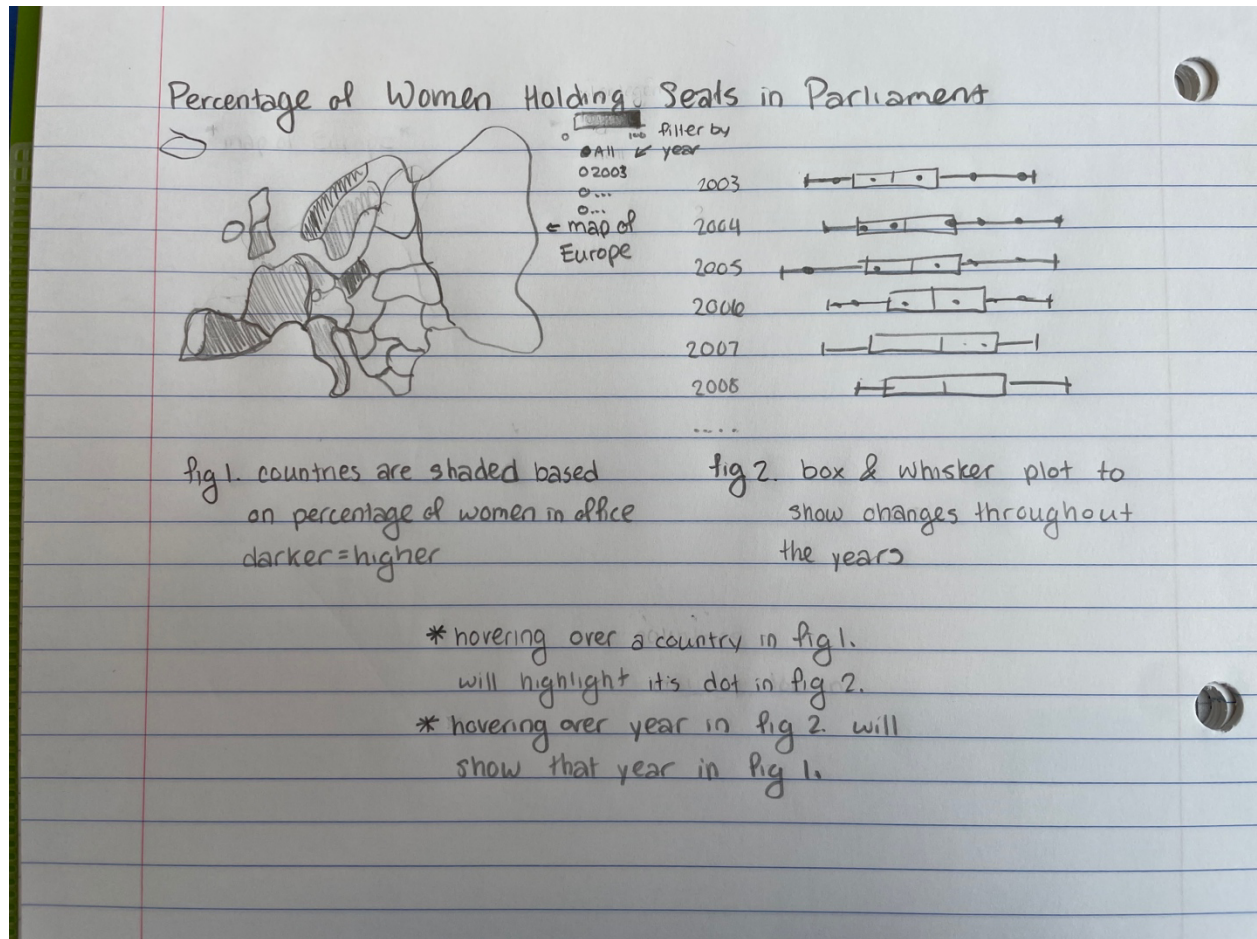 Percentage of Women Holding Seats in Parliament
0 100 filter by
All year
2003
...
...
map of
Europe
2003
2004
2005
2006
2007
2008
....
fig 1. countries are shaded based
on percentage of women in office
darker = higher
fig 2. box & whisker plot to
show changes throughout
the years
* hovering over a country in fig 1.
will highlight it's dot in fig 2.
* hovering over year in fig 2. will
show that year in fig 1.